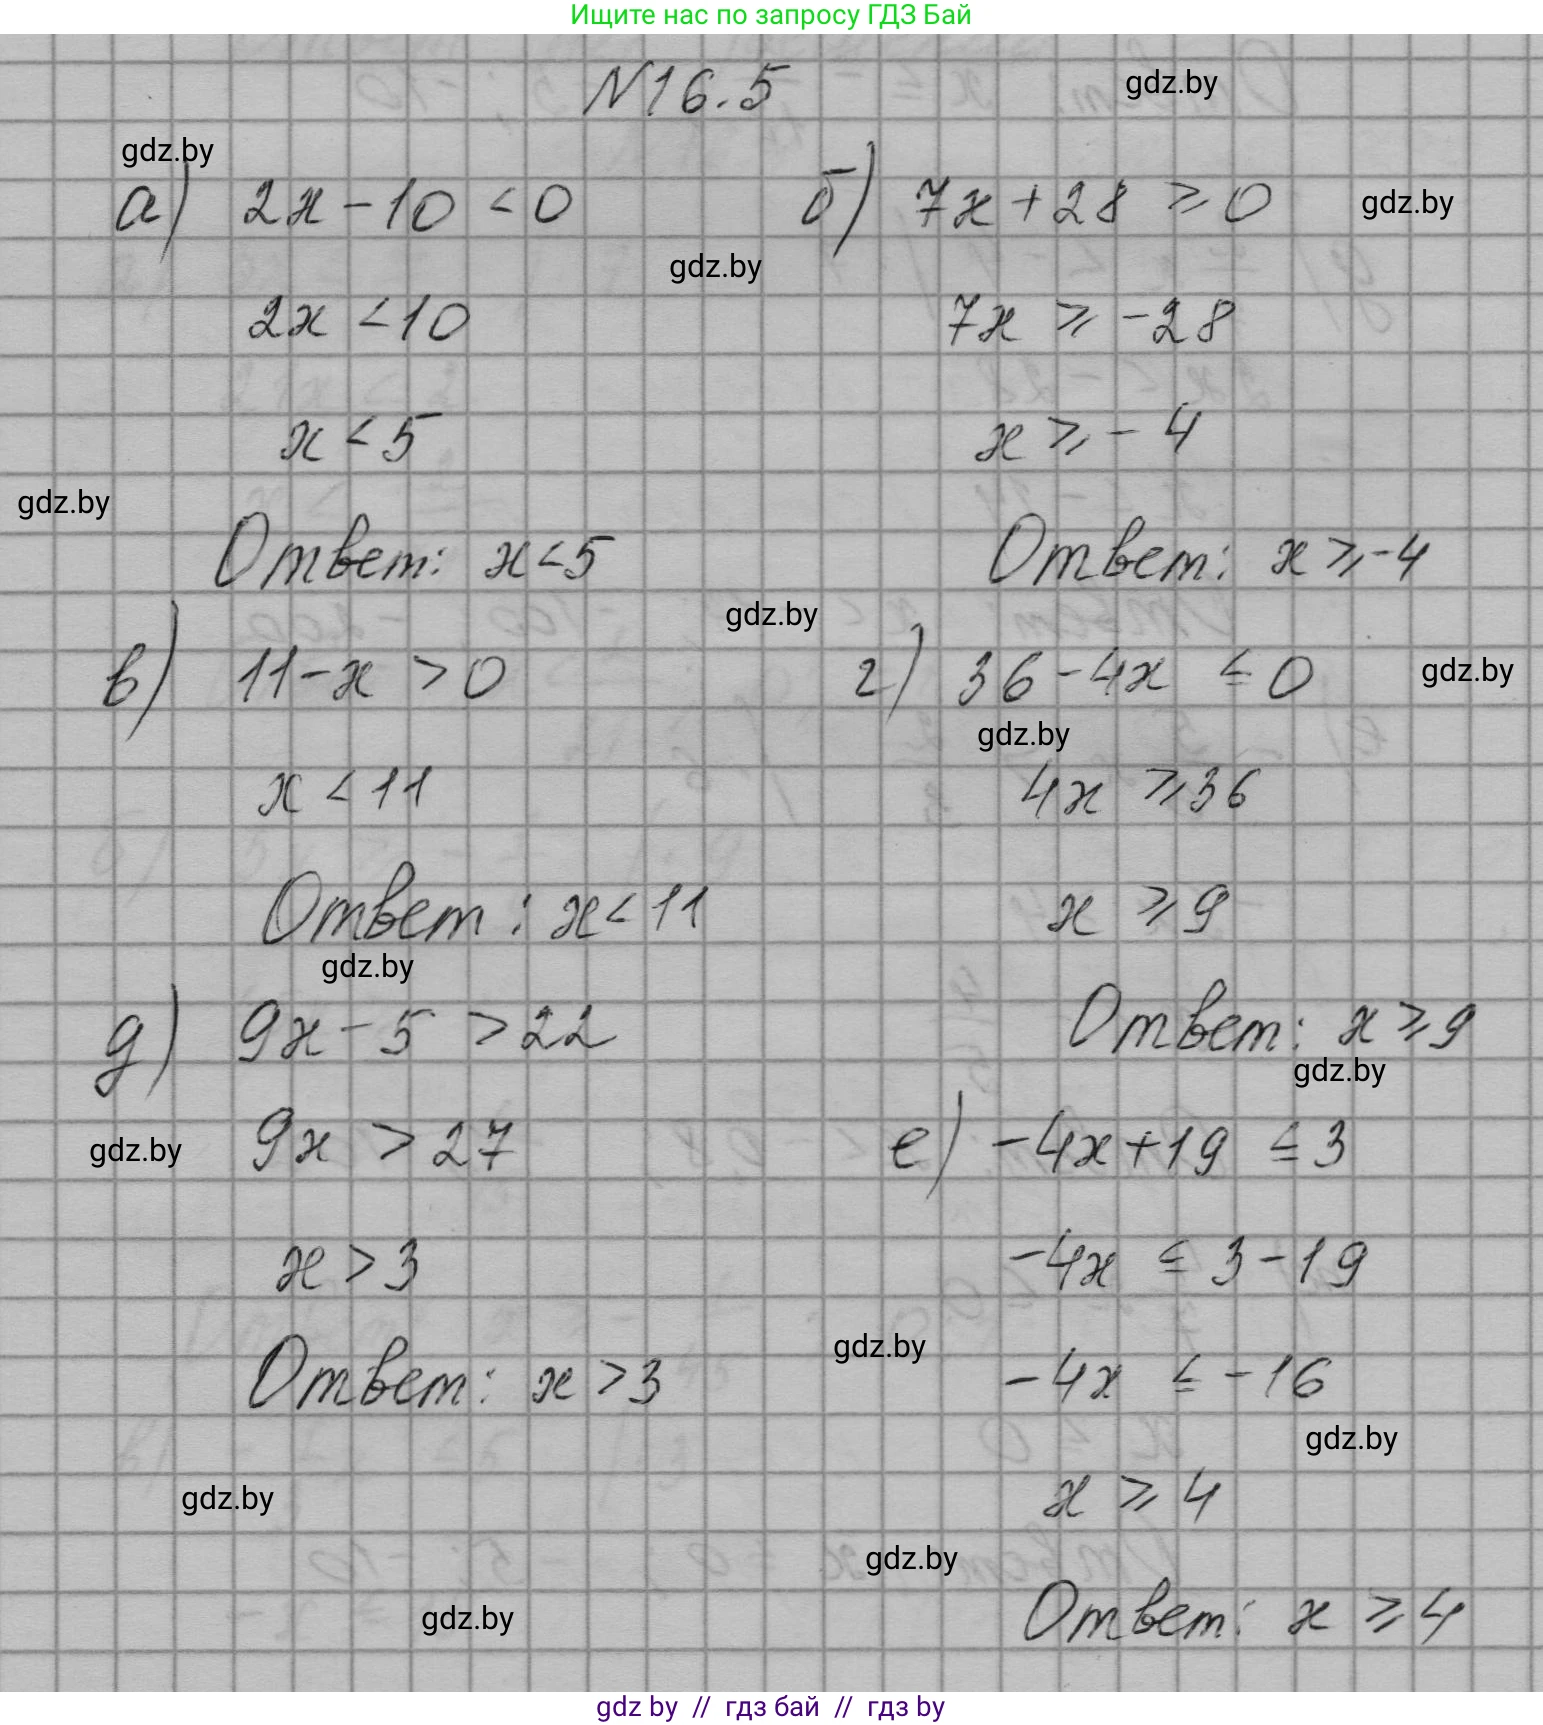 Ищите нас по запросу ГДЗ Бай
N16.5
gdz.by
gdz.by
а) 2x - 10 < 0
б) 7x + 28 ⩾ 0
gdz.by
gdz.by
2x < 10
7x ⩾ -28
x < 5
x ⩾ - 4
gdz.by
Ответ: x < 5
Ответ: x ⩾ -4
gdz.by
в) 11 - x > 0
г) 36 - 4x ≤ 0
gdz.by
gdz.by
x < 11
4x ⩾ 36
Ответ: x < 11
x ⩾ 9
gdz.by
д) 9x - 5 > 22
Ответ: x ⩾ 9
gdz.by
9x > 27
е) -4x + 19 ≤ 3
gdz.by
x > 3
-4x ≤ 3 - 19
gdz.by
Ответ: x > 3
-4x ≤ -16
gdz.by
gdz.by
x ⩾ 4
gdz.by
gdz.by
Ответ: x ⩾ 4
gdz by // гдз бай // гдз by